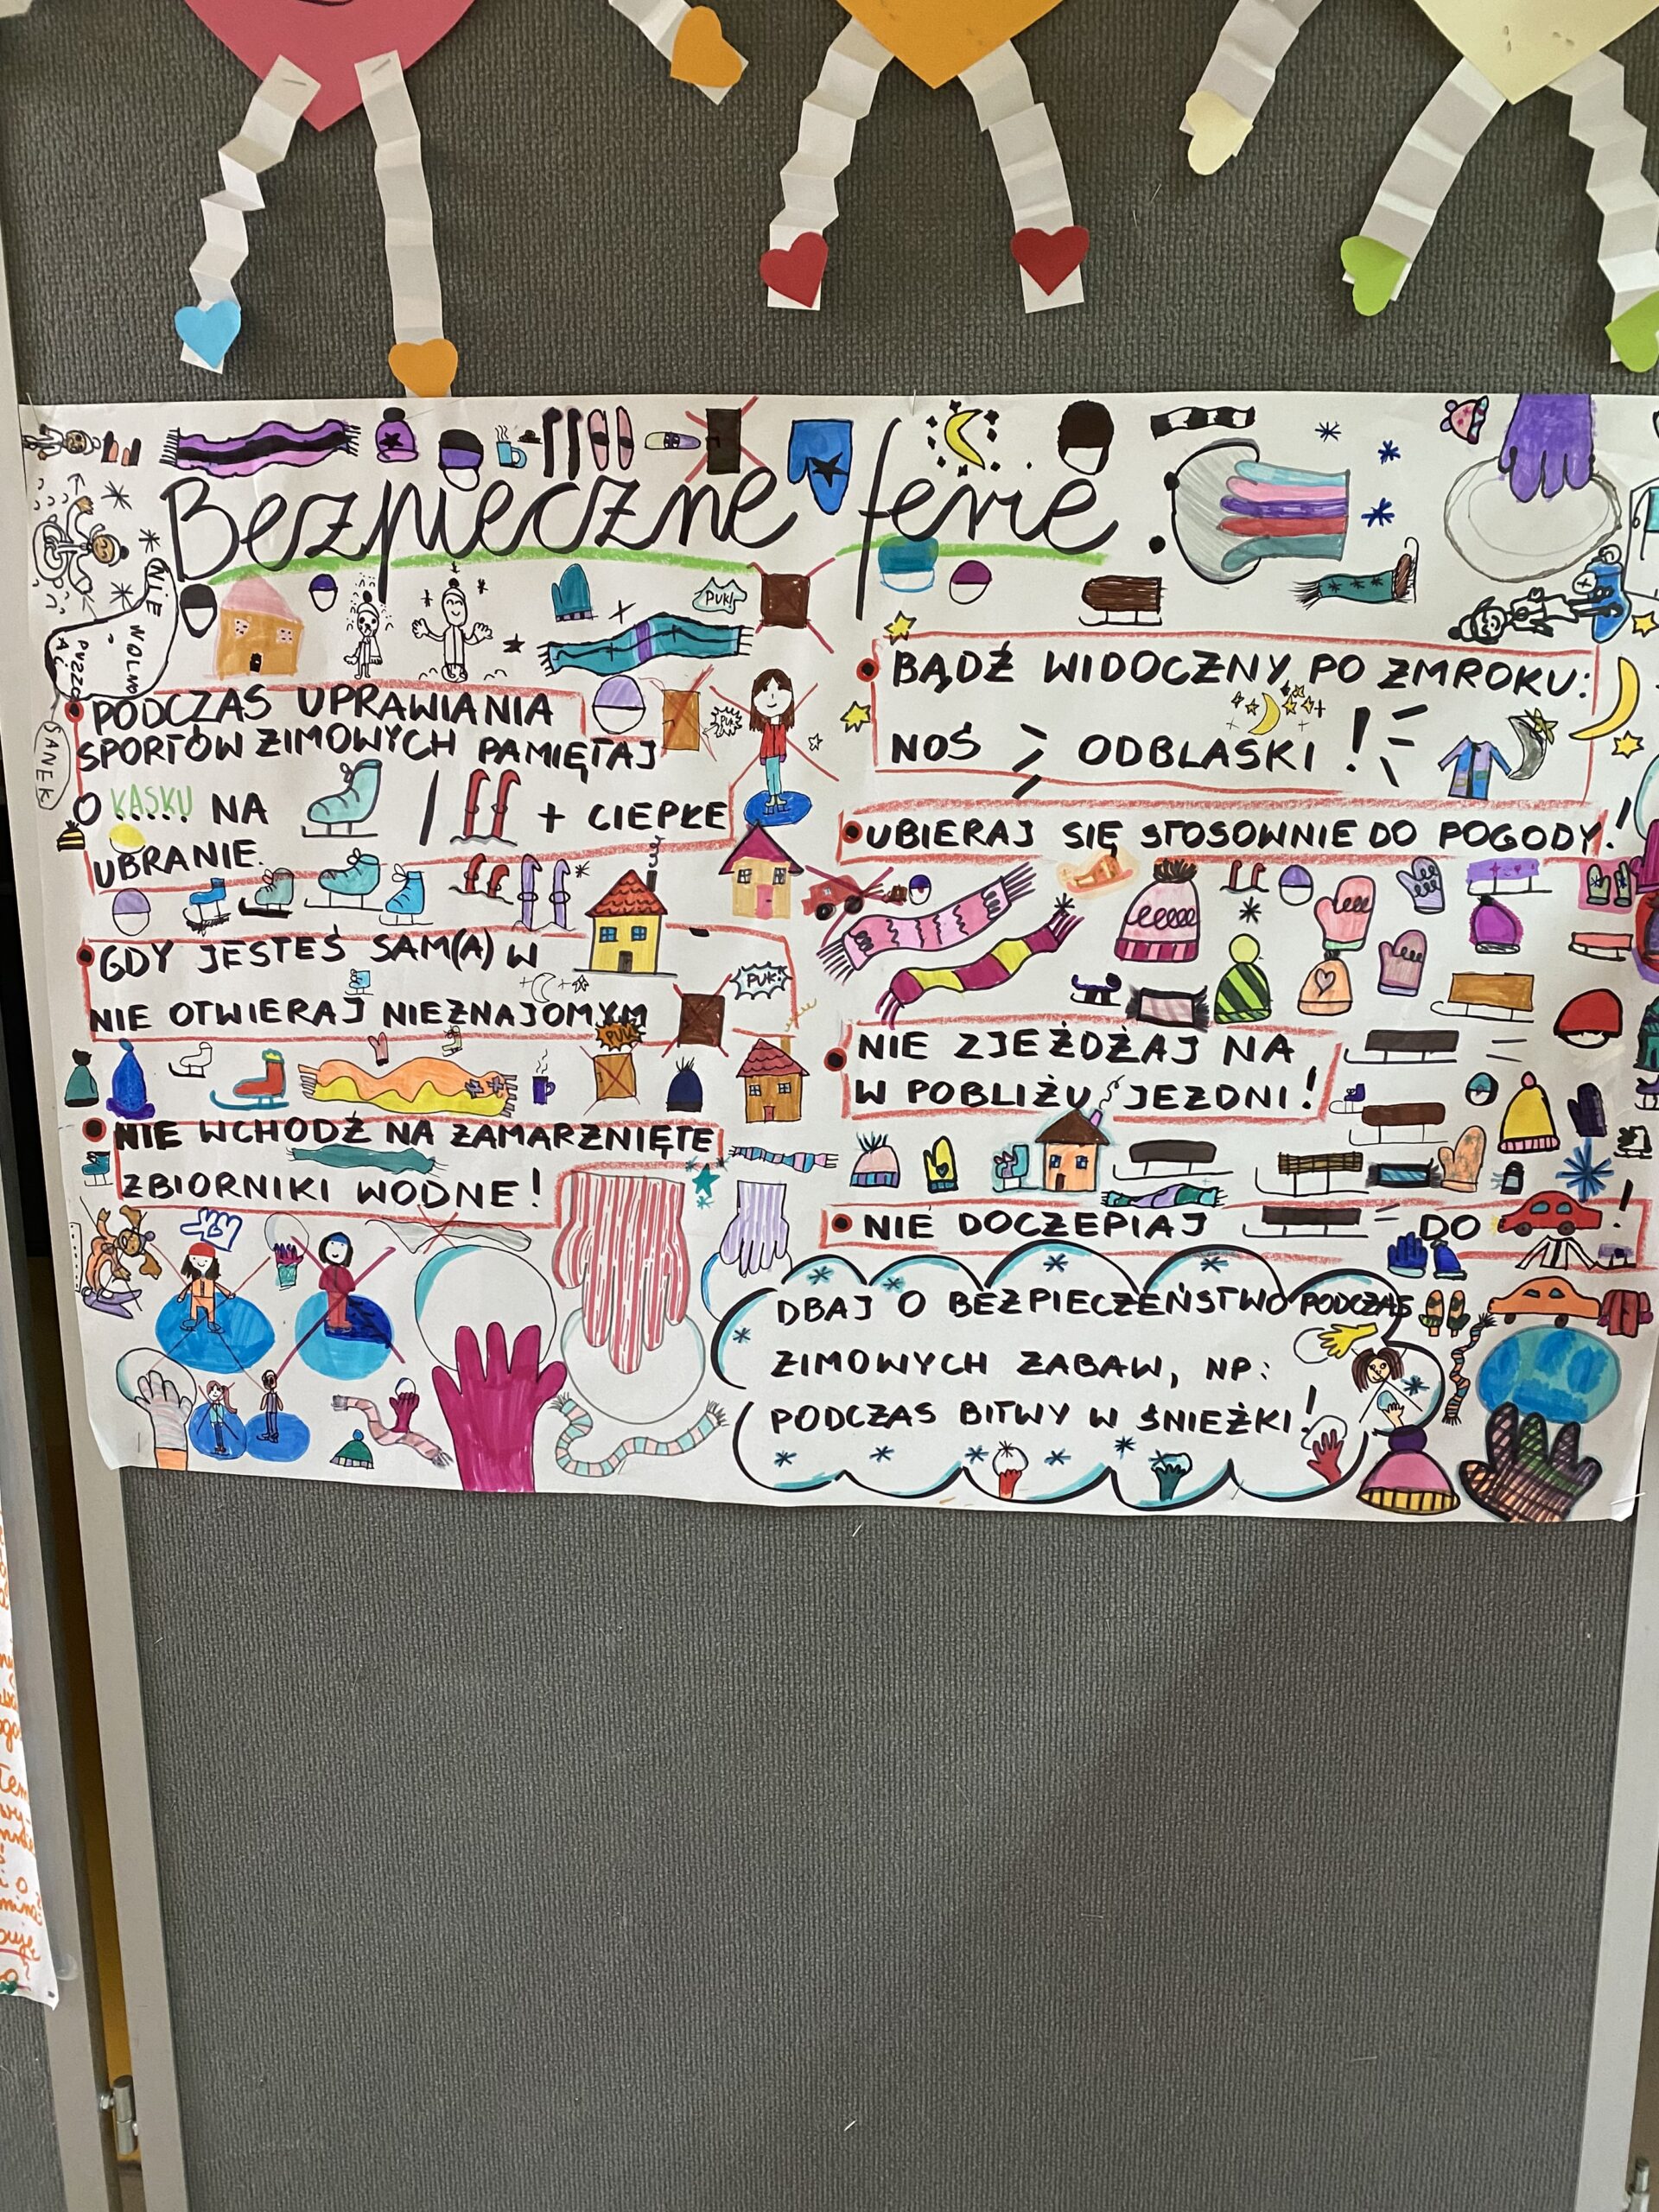 Bezpieczne ferie.
PUK!
NIE WOLNO
PUSZCZAĆ
SANEK
PODCZAS UPRAWIANIA
SPORTÓW ZIMOWYCH PAMIĘTAJ
O KASKU NA / + CIEPŁE
UBRANIE.
GDY JESTEŚ SAM(A) W
NIE OTWIERAJ NIEZNAJOMYM
PUK!
PUK!
NIE WCHODŹ NA ZAMARZNIĘTE
ZBIORNIKI WODNE!
BĄDŹ WIDOCZNY PO ZMROKU:
NOŚ ODBLASKI!
UBIERAJ SIĘ STOSOWNIE DO POGODY!
NIE ZJEŻDŻAJ NA
W POBLIŻU JEZDNI!
NIE DOCZEPIAJ DO !
DBAJ O BEZPIECZEŃSTWO PODCZAS
ZIMOWYCH ZABAW, NP:
PODCZAS BITWY W ŚNIEŻKI!